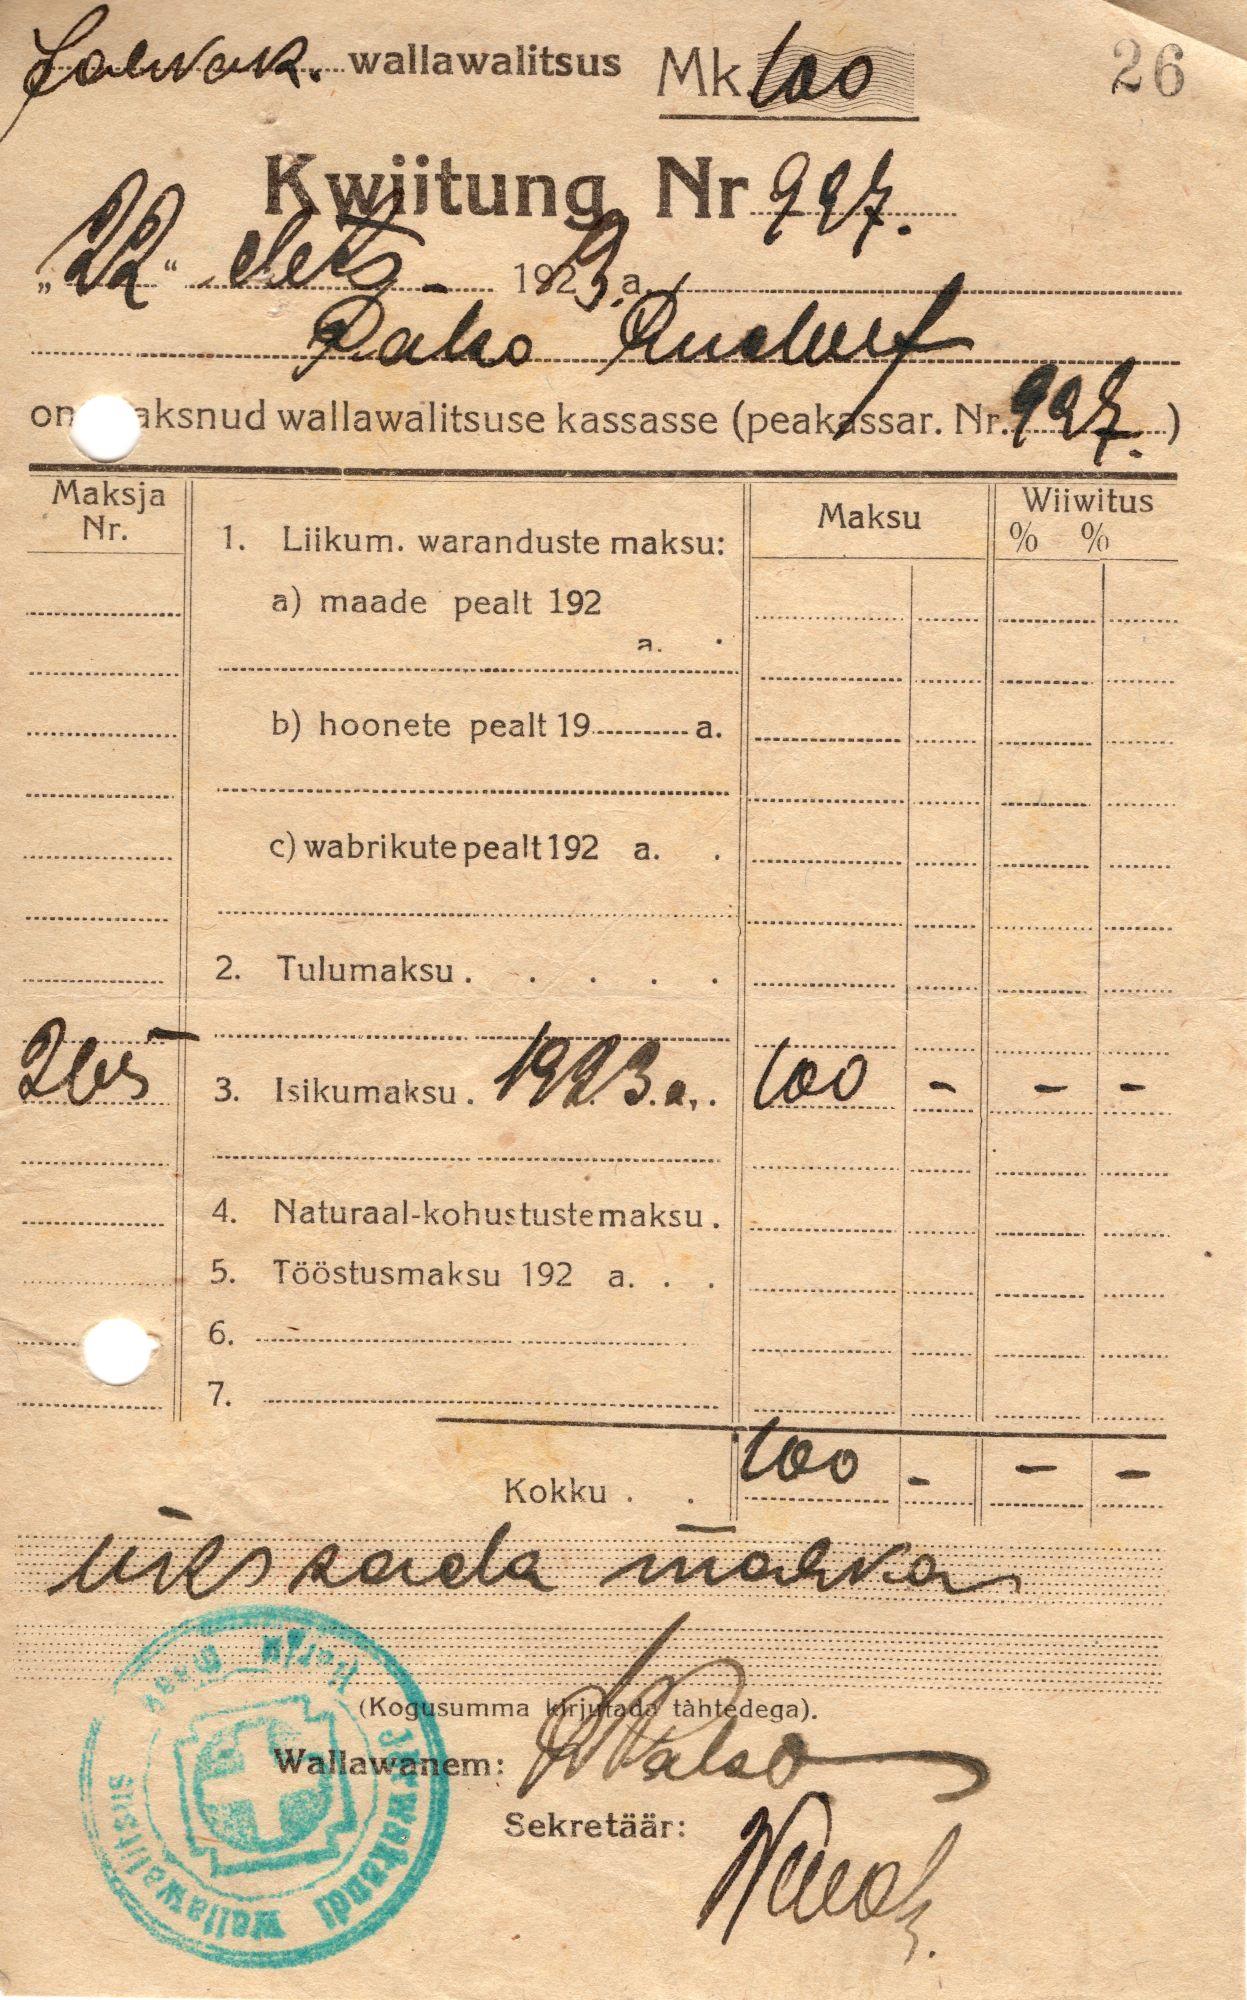 wallawalitsus Mk. 100
26
Kwiitung Nr 997.
„22“ dets - 1923. a.
Palso Rudolf
on maksnud wallawalitsuse kassasse (peakassar. Nr. 997.)
Maksja Nr.
Maksu
Wiiwitus
% %
1. Liikum. waranduste maksu:
a) maade pealt 192
a. .
b) hoonete pealt 19 a.
c) wabrikute pealt 192 a. .
2. Tulumaksu . . . . .
265 3. Isikumaksu . 1923. a. . 100 - - -
4. Naturaal-kohustustemaksu .
5. Tööstusmaksu 192 a. . .
6.
7.
Kokku . . 100 - - -
üks sada marka
(Kogusumma kirjutada tähtedega).
Wallawanem: Palso
Sekretäär:
Järwakandi Wallawalitsus
Harju Maak